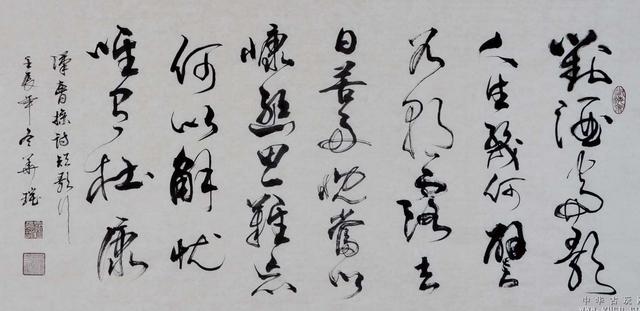 對酒當歌
人生幾何譬
如朝露去
日苦多慨當以
慷思難忘
何以解忧
唯有杜康
漢曹操詩短歌行
壬辰年冬華
中华古玩